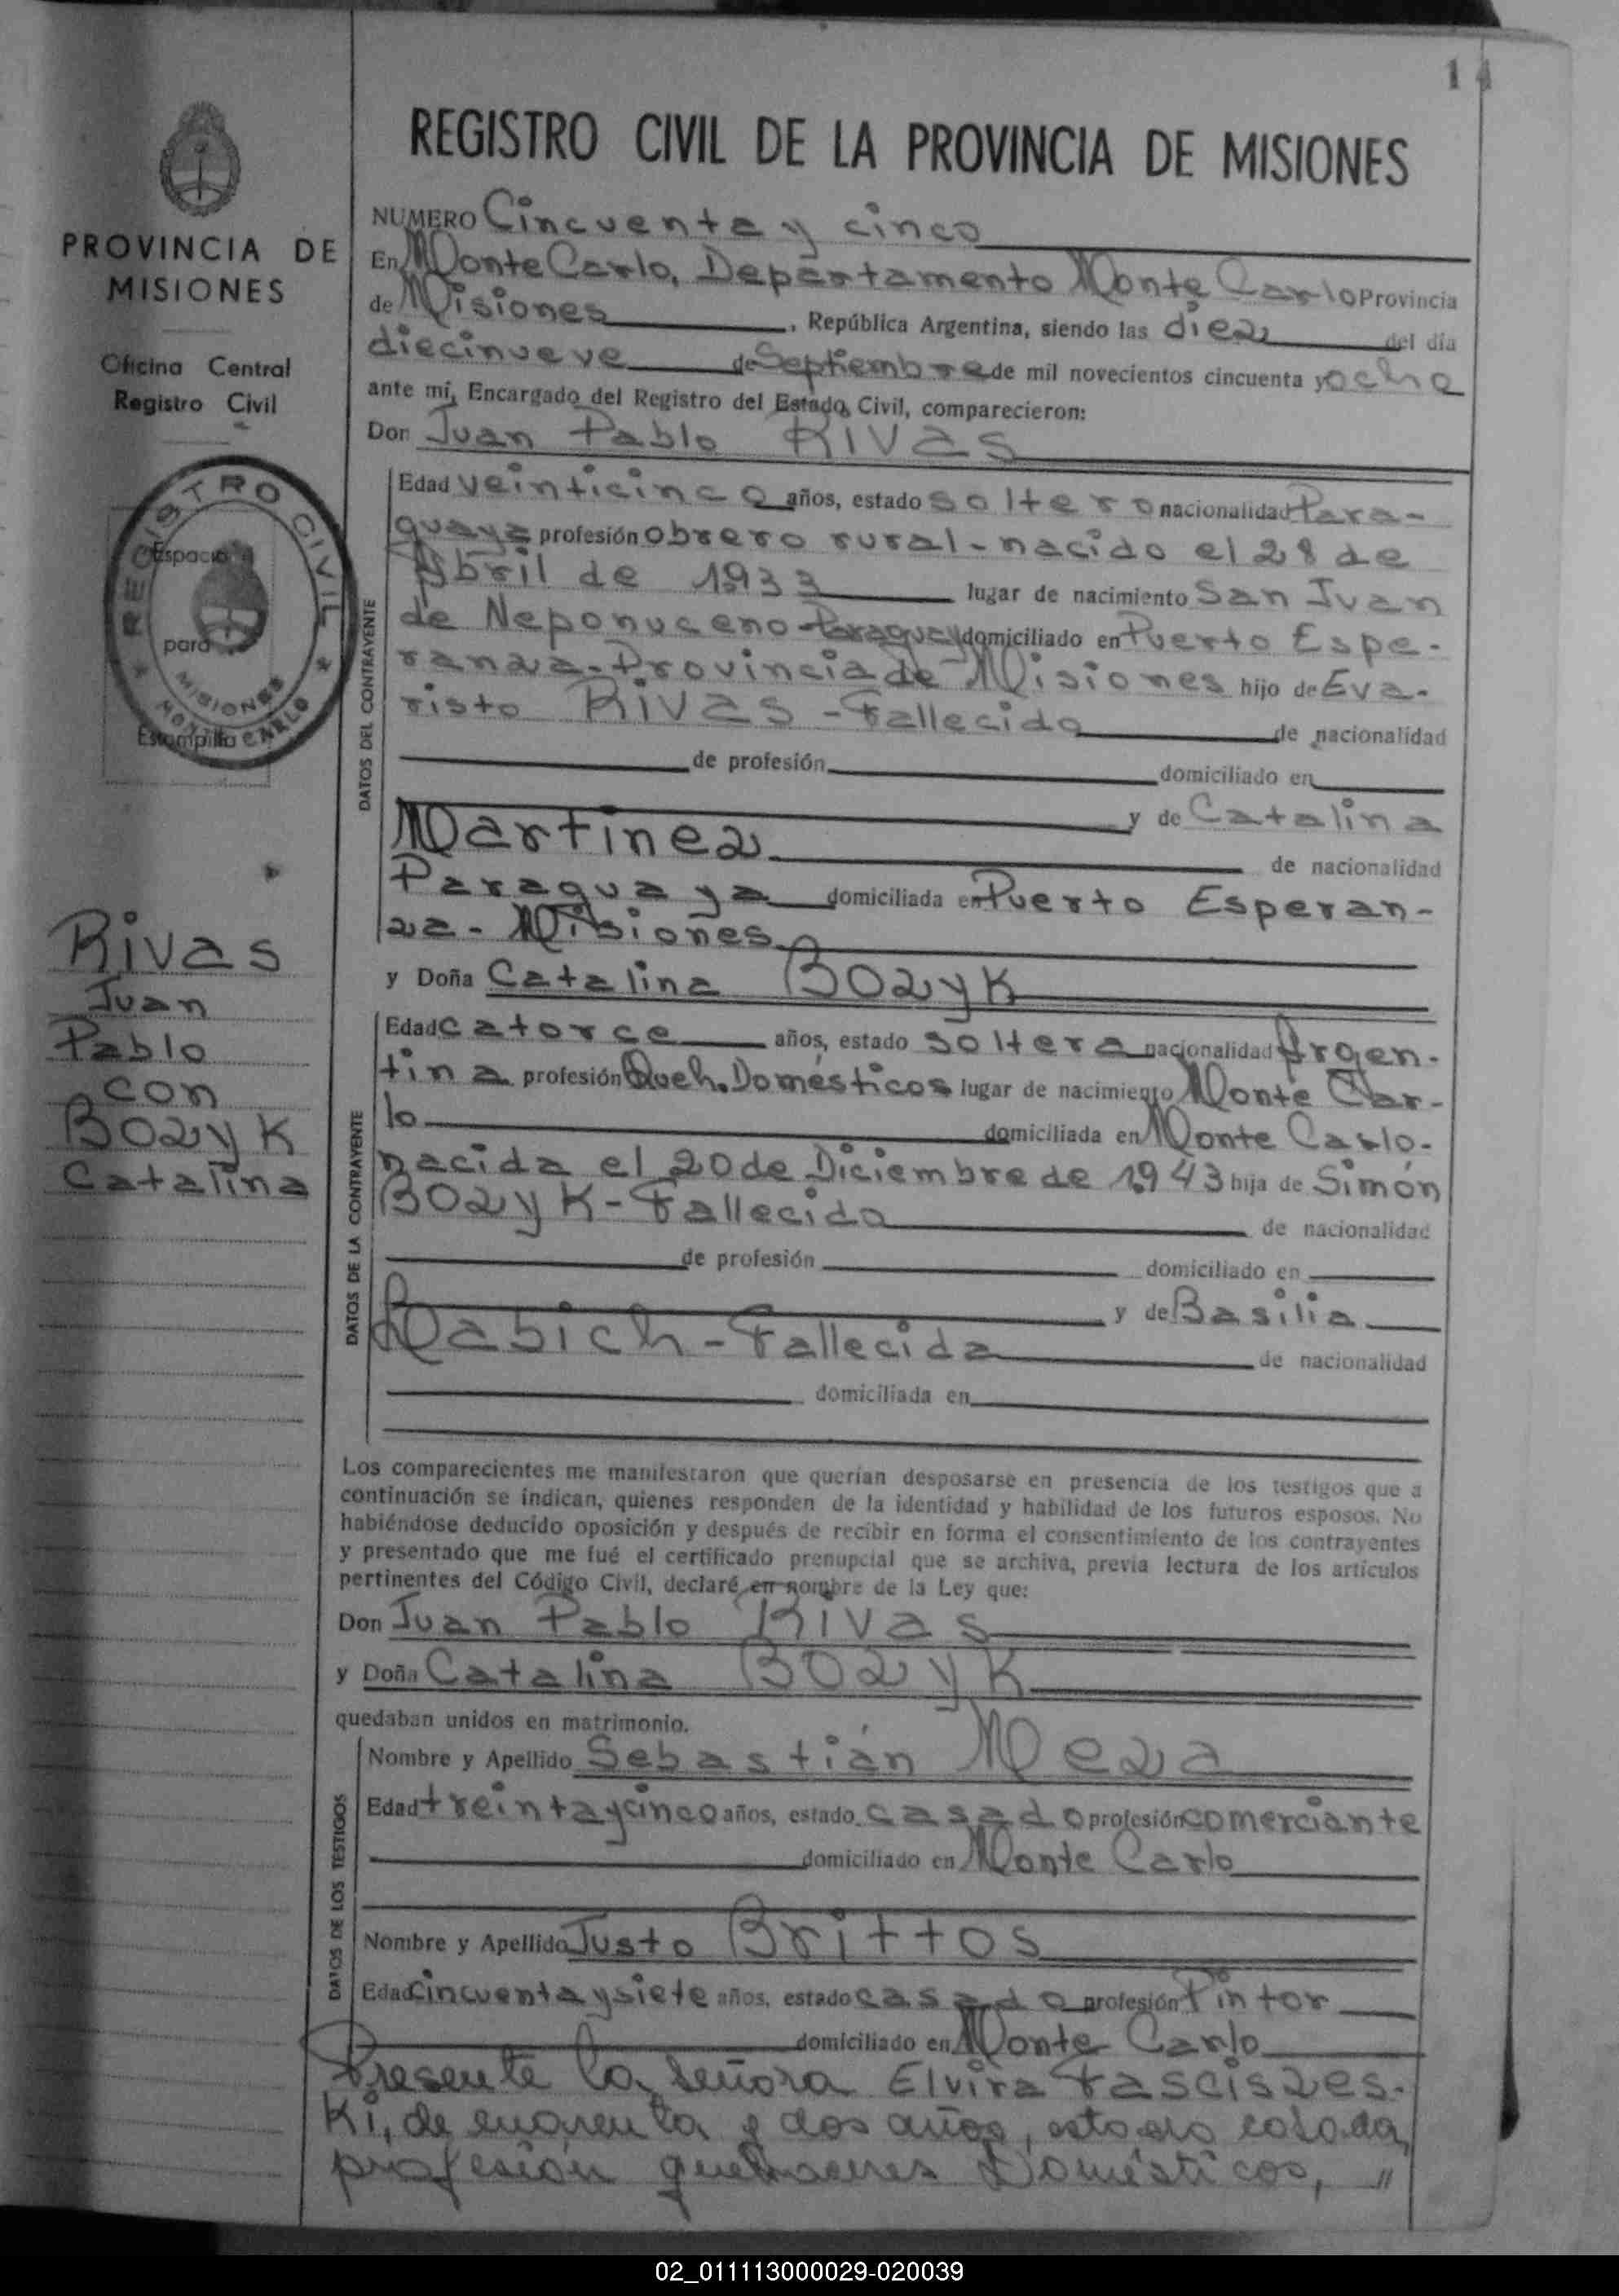 14
REGISTRO CIVIL DE LA PROVINCIA DE MISIONES
PROVINCIA DE
MISIONES
Oficina Central
Registro Civil
REGISTRO CIVIL
Espacio
para
Estampilla
MISIONES
MONTE CARLO
Rivas
Juan
Pablo
con
Bozyk
Catalina
NUMERO Cincuenta y cinco
En Monte Carlo, Departamento Monte Carlo Provincia
de Misiones, República Argentina, siendo las diez del día
diecinueve de Septiembre de mil novecientos cincuenta y ocho
ante mí, Encargado del Registro del Estado Civil, comparecieron:
Don Juan Pablo RIVAS
DATOS DEL CONTRAYENTE
Edad veinticinco años, estado soltero nacionalidad Para-
guaya profesión obrero rural - nacido el 28 de
Abril de 1933 lugar de nacimiento San Juan
de Neponuceno - Paraguay domiciliado en Puerto Espe-
ranza - Provincia de Misiones hijo de Eva-
risto RIVAS - Fallecido de nacionalidad
de profesión domiciliado en
y de Catalina
Martinez de nacionalidad
Paraguaya domiciliada en Puerto Esperan-
za - Misiones
y Doña Catalina BOZYK
DATOS DE LA CONTRAYENTE
Edad catorce años, estado soltera nacionalidad Argen-
tina profesión Queh. Domésticos lugar de nacimiento Monte Car-
lo domiciliada en Monte Carlo -
nacida el 20 de Diciembre de 1943 hija de Simón
BOZYK - Fallecido de nacionalidad
de profesión domiciliado en
y de Basilia
Fallecida de nacionalidad
domiciliada en
Los comparecientes me manifestaron que querían desposarse en presencia de los testigos que a
continuación se indican, quienes responden de la identidad y habilidad de los futuros esposos. No
habiéndose deducido oposición y después de recibir en forma el consentimiento de los contrayentes
y presentado que me fué el certificado prenupcial que se archiva, previa lectura de los artículos
pertinentes del Código Civil, declaré en nombre de la Ley que:
Don Juan Pablo RIVAS
y Doña Catalina BOZYK
quedaban unidos en matrimonio.
DATOS DE LOS TESTIGOS
Nombre y Apellido Sebastián Meza
Edad treinta y cinco años, estado casado profesión comerciante
domiciliado en Monte Carlo
Nombre y Apellido Justo Brittos
Edad cincuenta y siete años, estado casado profesión Pintor
domiciliado en Monte Carlo
Presente la señora Elvira Fasciszes-
ki, de cuarenta y dos años, estado casada,
profesión quehaceres Domésticos, "
02_011113000029-020039